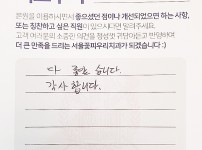 본원을 이용하시면서 좋으셨던 점이나 개선되었으면 하는 사항,
또는 칭찬하고 싶은 직원이 있으시다면 말씀해 주십시오.
고객 여러분의 소중한 의견을 정성껏 귀담아듣고 반영하여
더 큰 만족을 드리는 서울꽃피우리치과가 되겠습니다 :)
다 좋았습니다.
감사합니다.